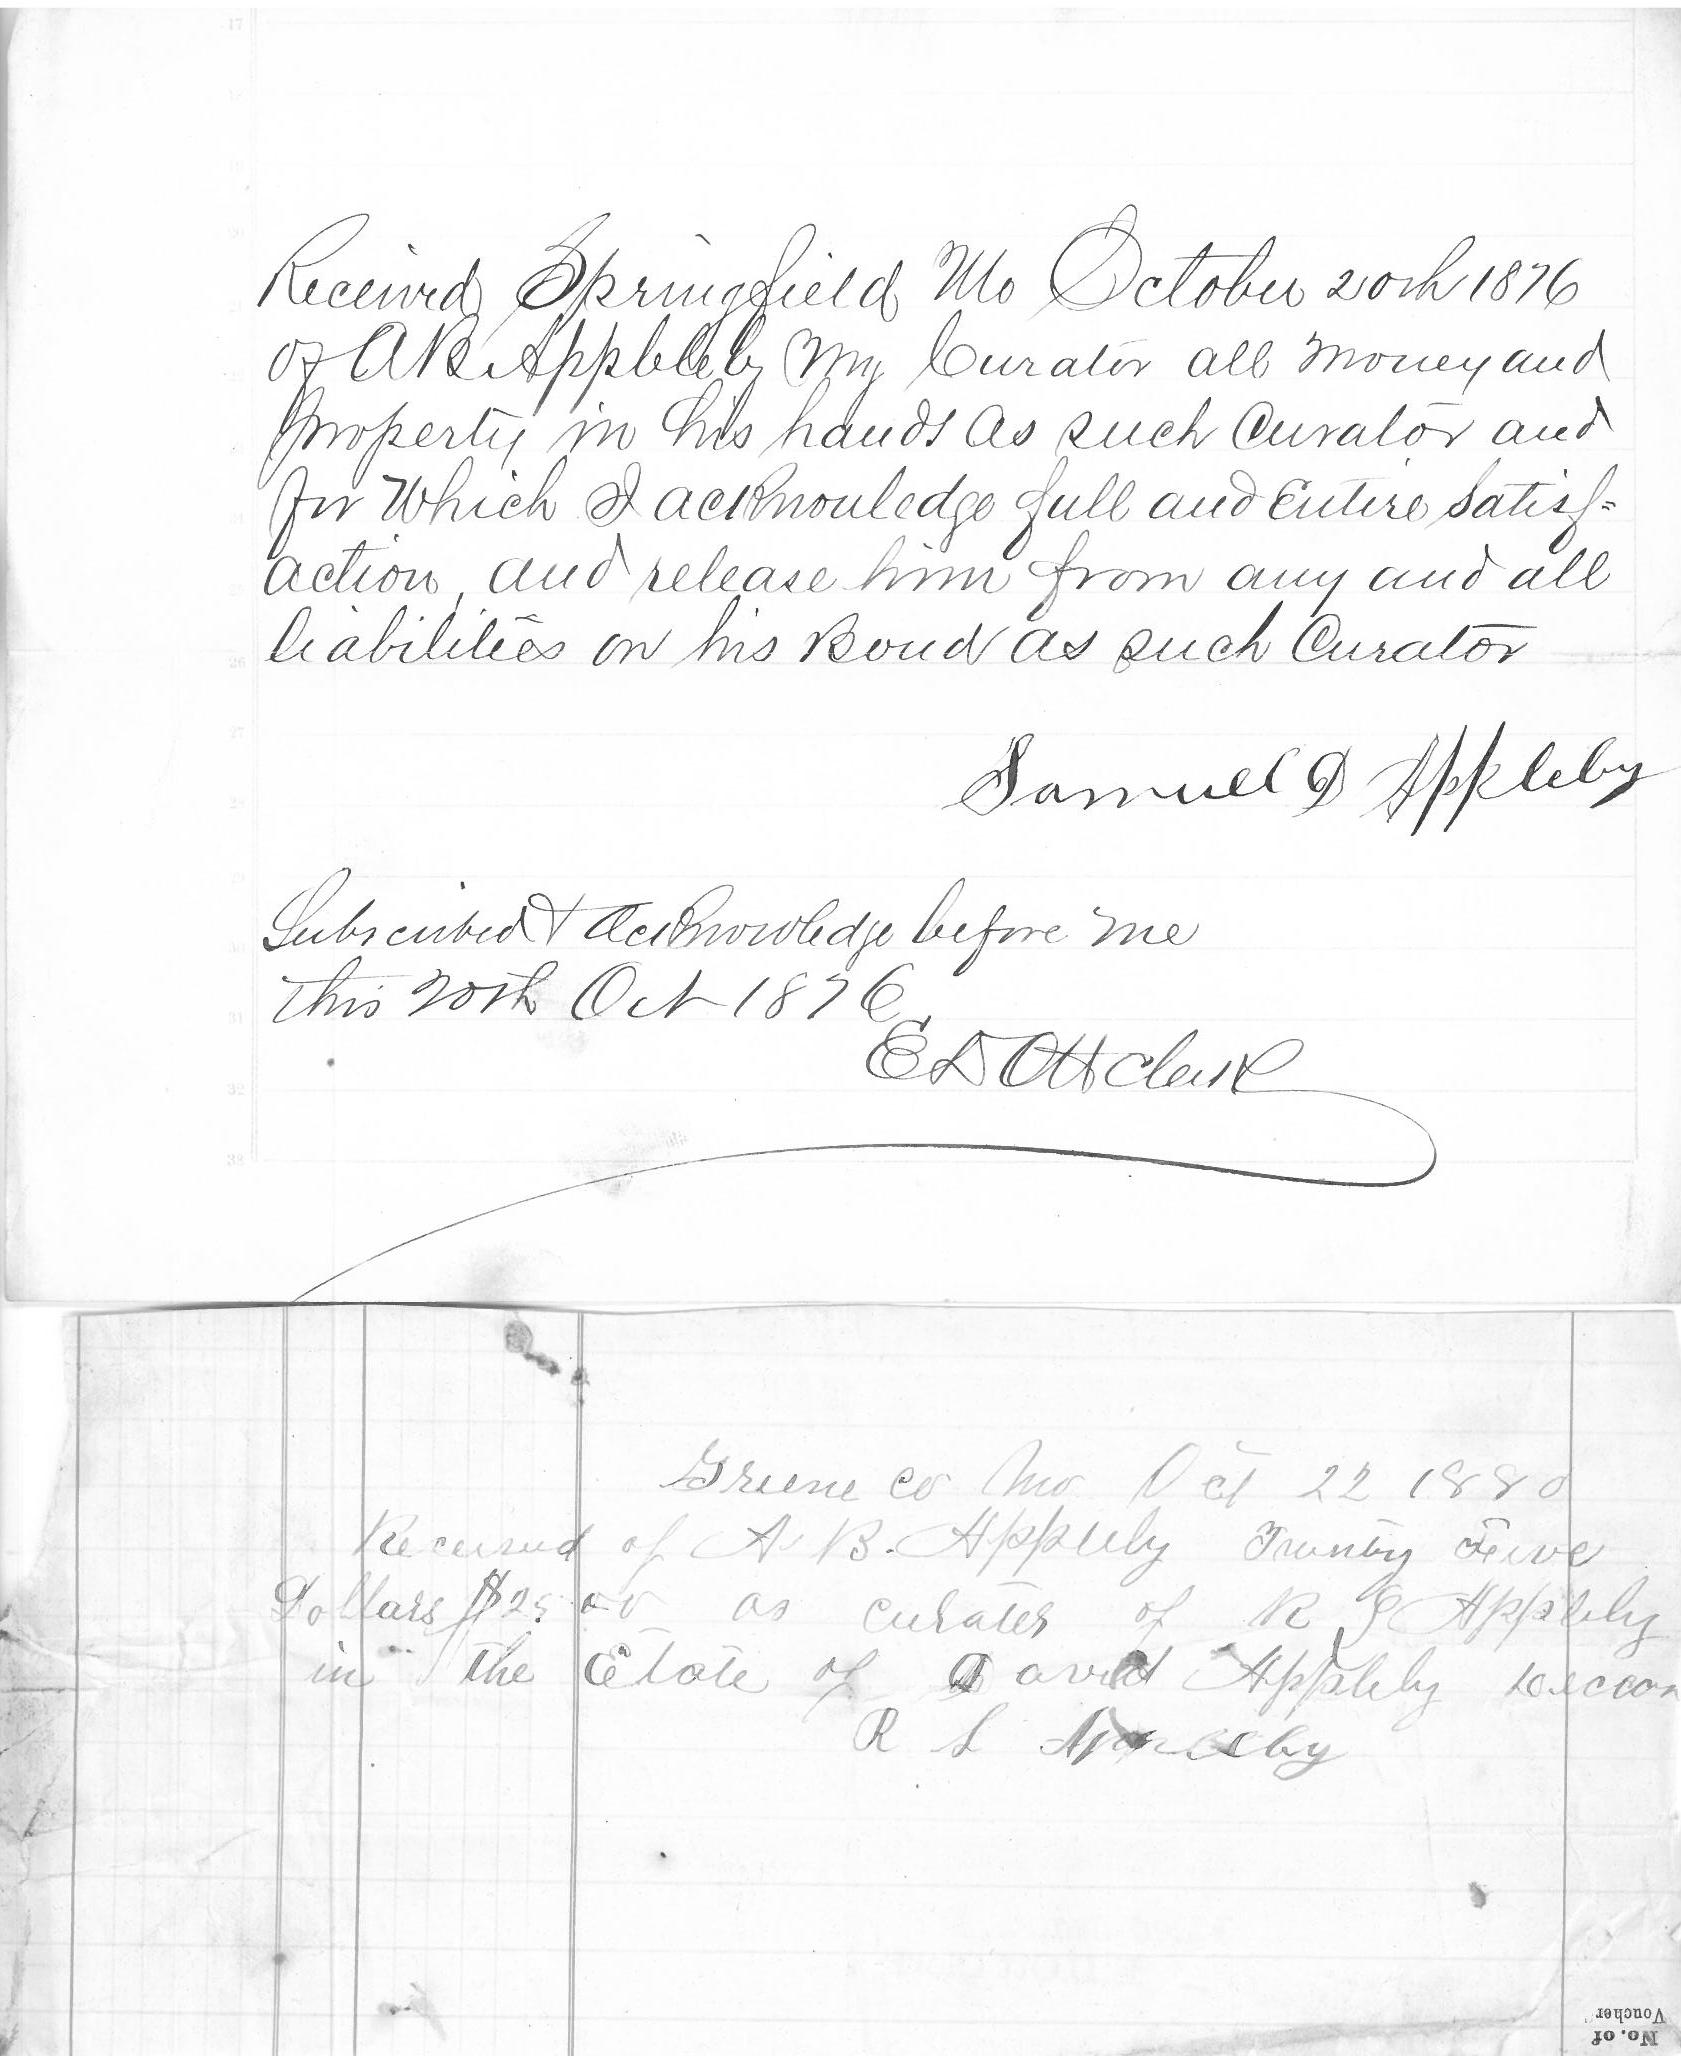 Received Springfield Mo October 20th 1876
of AB Appleleby My Curator all Money and
Property in his hands as such Curator and
for Which I acknowledge full and Entire Satisf=
action, and release him from any and all
liabilities on his Bond as such Curator
Samuel D Appleby
Subscribed & Acknowledge before me
this 20th Oct 1876
E D Ott Clerk
Greene Co Mo Oct 22 1880
Received of A. B. Appleby Twenty Five
Dollars $25.00 as curater of R S Appleby
in the Estate of David Appleby
R S Appleby
No. of
Voucher
17
26
27
28
29
30
31
32
33